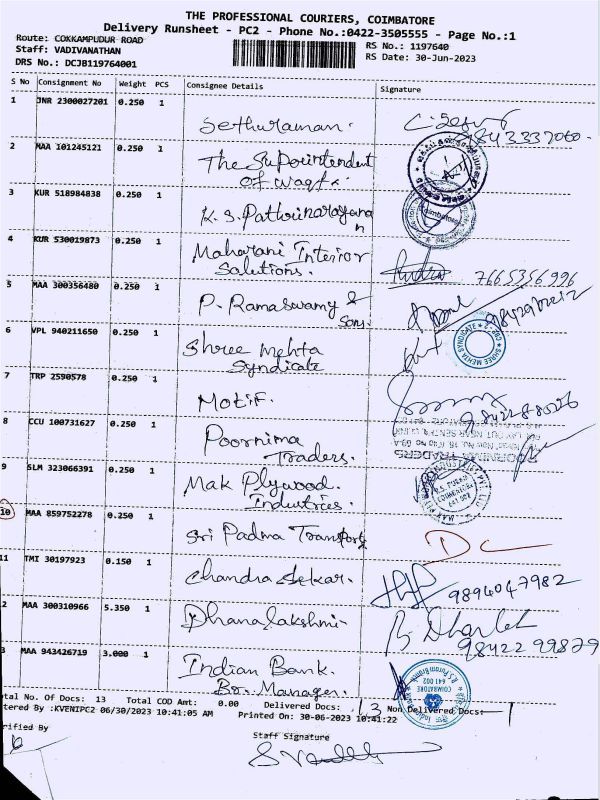 THE PROFESSIONAL COURIERS, COIMBATORE
Delivery Runsheet - PC2 - Phone No.:0422-3505555 - Page No.:1
Route: COKKAMPUDUR ROAD
RS No.: 1197640
Staff: VADIVANATHAN
RS Date: 30-Jun-2023
DRS No.: DCJB119764001
S No Consignment No Weight PCS Consignee Details Signature
1 JNR 2300027201 0.250 1
Sethuraman.
9843337060
2 MAA 101245121 0.250 1
The Superintendent
of waqfs.
3 KUR 518984838 0.250 1
K.S. Pathirinarayanan
Coimbatore
4 KUR 530019873 0.250 1
Maharani Interior
Solutions.
7665356996
5 MAA 300356480 0.250 1
P. Ramaswamy &
Sons.
6 VPL 940211650 0.250 1
Shree Mehta
Syndicate
SHREE MEHTA SYNDICATE
7 TRP 2590578 0.250 1
Motif.
8 CCU 100731627 0.250 1
Poornima
Traders.
POORNIMA TRADERS
9 SLM 323066391 0.250 1
Mak Plywood
Industries.
10 MAA 859752278 0.250 1
Sri Padma Transports
DC
11 TMI 30197923 0.150 1
Chandra Sekar.
9894047982
2 MAA 300310966 5.350 1
Dhanalakshmi
98422 99879
3 MAA 943426719 3.000 1
Indian Bank.
Br. Manager.
COIMBATORE
641 002
otal No. Of Docs: 13 Total COD Amt: 0.00 Delivered Docs: 13 Non Delivered Docs: 1
tered By :KVENIPC2 06/30/2023 10:41:05 AM Printed On: 30-06-2023 10:41:22
rified By
Staff Signature